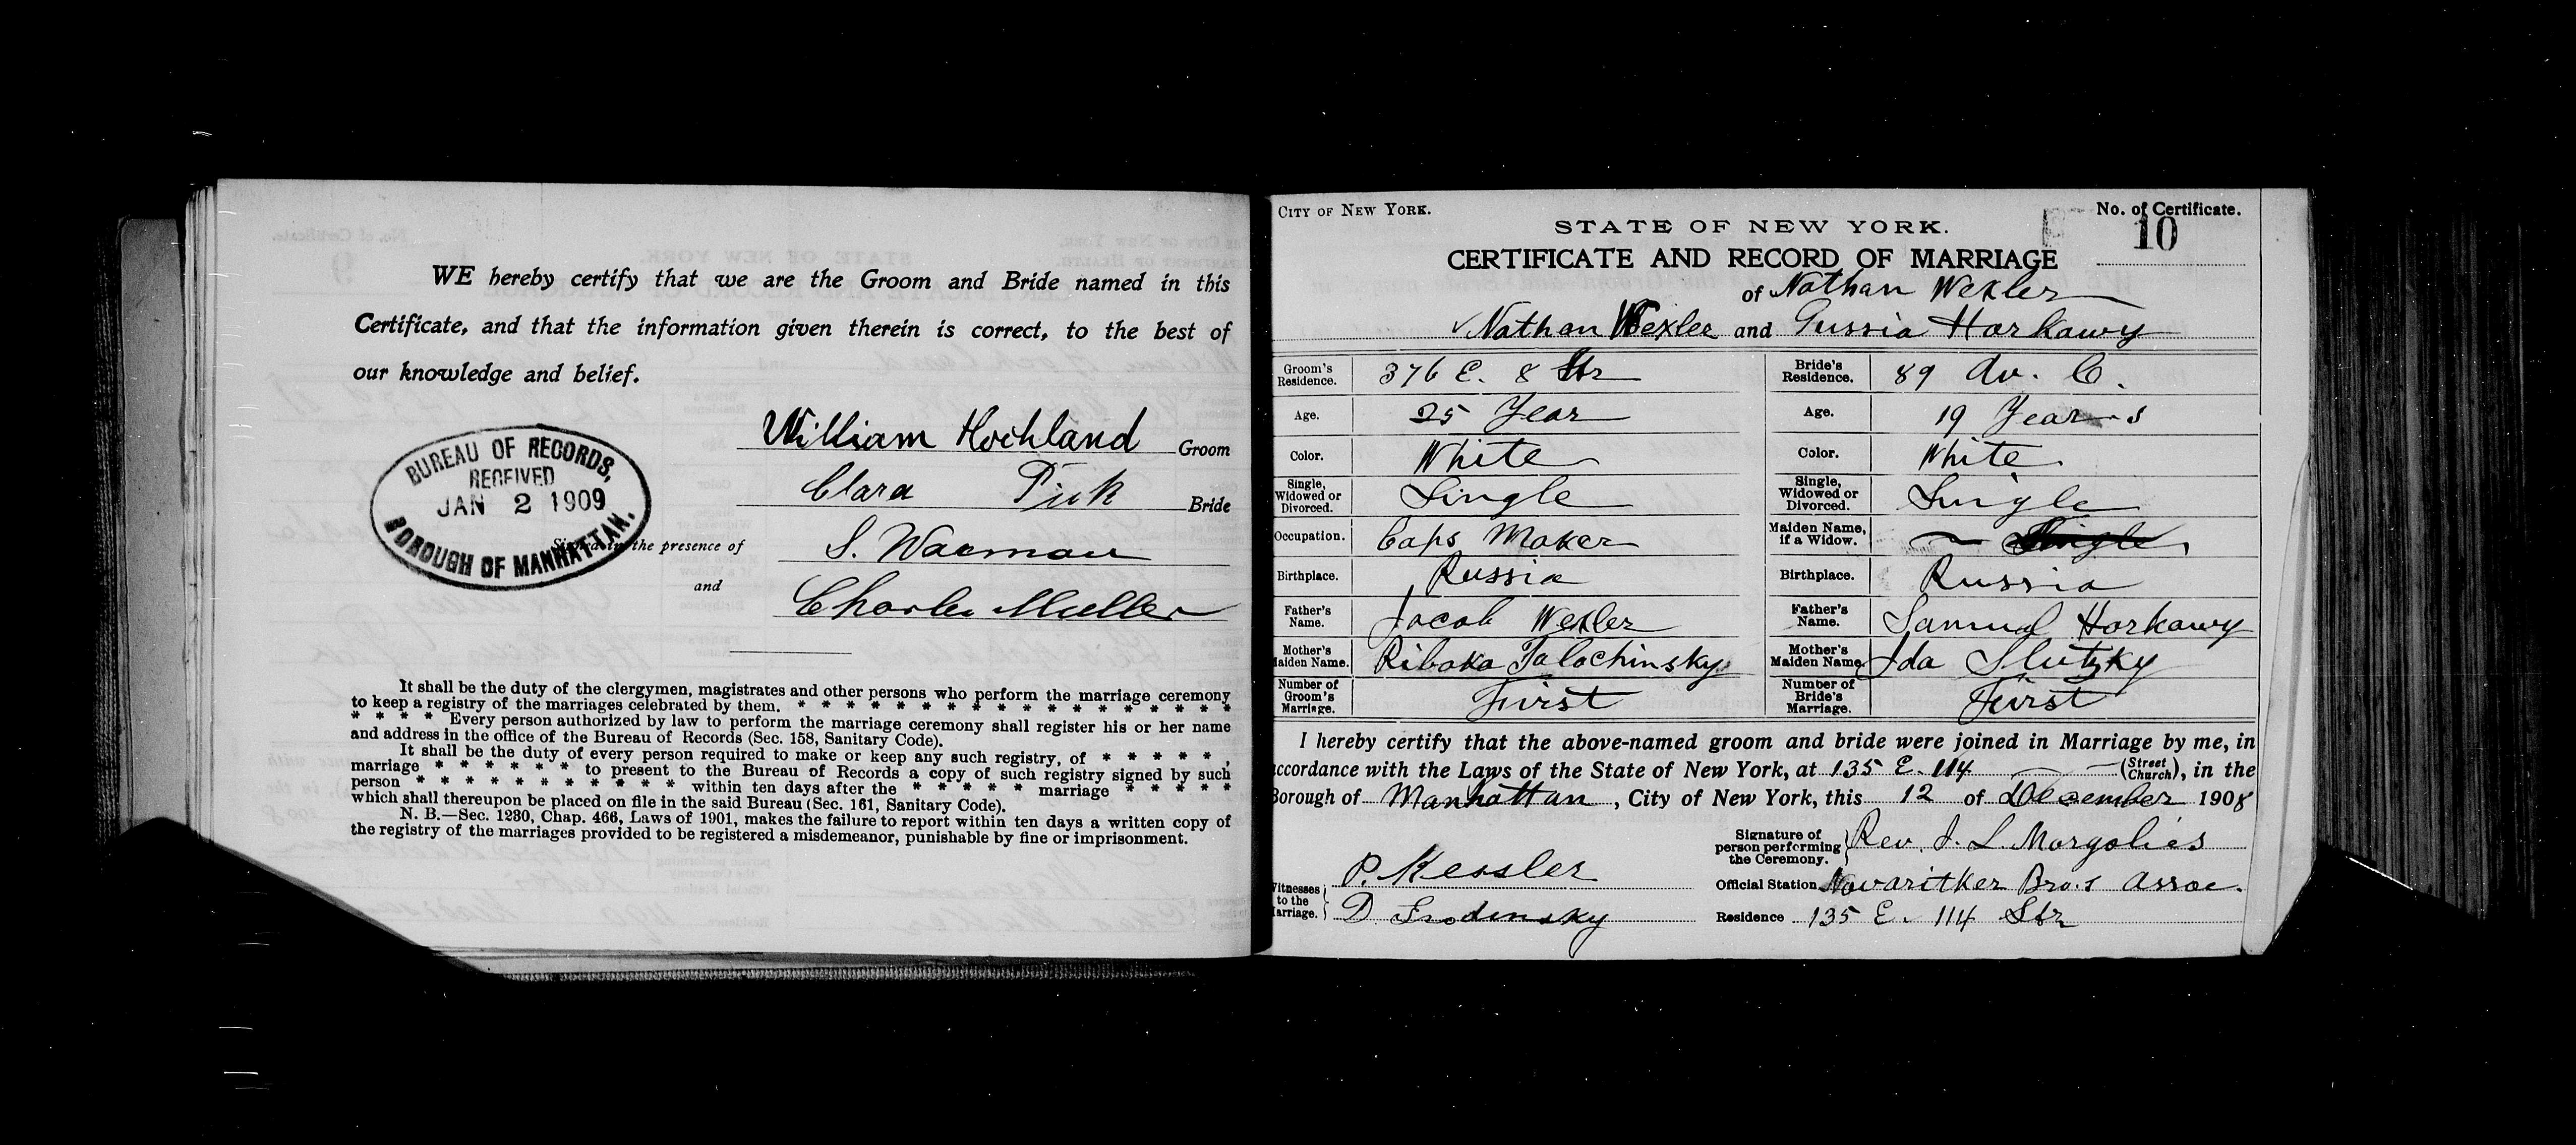 WE hereby certify that we are the Groom and Bride named in this
Certificate, and that the information given therein is correct, to the best of
our knowledge and belief.
William Hochland Groom
Clara Pick Bride
BUREAU OF RECORDS,
RECEIVED
JAN 2 1909
BOROUGH OF MANHATTAN.
Signed in the presence of S. Waxman
and Charles Muller
It shall be the duty of the clergymen, magistrates and other persons who perform the marriage ceremony
to keep a registry of the marriages celebrated by them. * * * * * * * * * * * * * * * * * *
* * * * Every person authorized by law to perform the marriage ceremony shall register his or her name
and address in the office of the Bureau of Records (Sec. 158, Sanitary Code).
It shall be the duty of every person required to make or keep any such registry, of * * * * * ,
marriage * * * * * * to present to the Bureau of Records a copy of such registry signed by such
person * * * * * * * * * * * within ten days after the * * * * * marriage * * * * *
which shall thereupon be placed on file in the said Bureau (Sec. 161, Sanitary Code).
N. B.—Sec. 1230, Chap. 466, Laws of 1901, makes the failure to report within ten days a written copy of
the registry of the marriages provided to be registered a misdemeanor, punishable by fine or imprisonment.
CITY OF NEW YORK.
No. of Certificate.
10
STATE OF NEW YORK.
CERTIFICATE AND RECORD OF MARRIAGE
of Nathan Wexler
Nathan Wexler and Gussia Horkawy
Groom's Residence. 376 E. 8 Str Bride's Residence. 89 Av. C.
Age. 25 Year Age. 19 Years
Color. White Color. White
Single, Widowed or Divorced. Single Single, Widowed or Divorced. Single
Occupation. Caps Maker Maiden Name, if a Widow. Single
Birthplace. Russia Birthplace. Russia
Father's Name. Jacob Wexler Father's Name. Samuel Horkawy
Mother's Maiden Name. Riboka Talochinsky Mother's Maiden Name Ida Slutzky
Number of Groom's Marriage. First Number of Bride's Marriage. First
I hereby certify that the above-named groom and bride were joined in Marriage by me, in
accordance with the Laws of the State of New York, at 135 E. 114 (Street Church), in the
Borough of Manhattan, City of New York, this 12 of December 1908
Signature of person performing the Ceremony. Rev. J. L. Margolies
Witnesses to the Marriage. P. Kessler
Official Station Bros Assoc.
D.
Residence 135 E. 114 Str